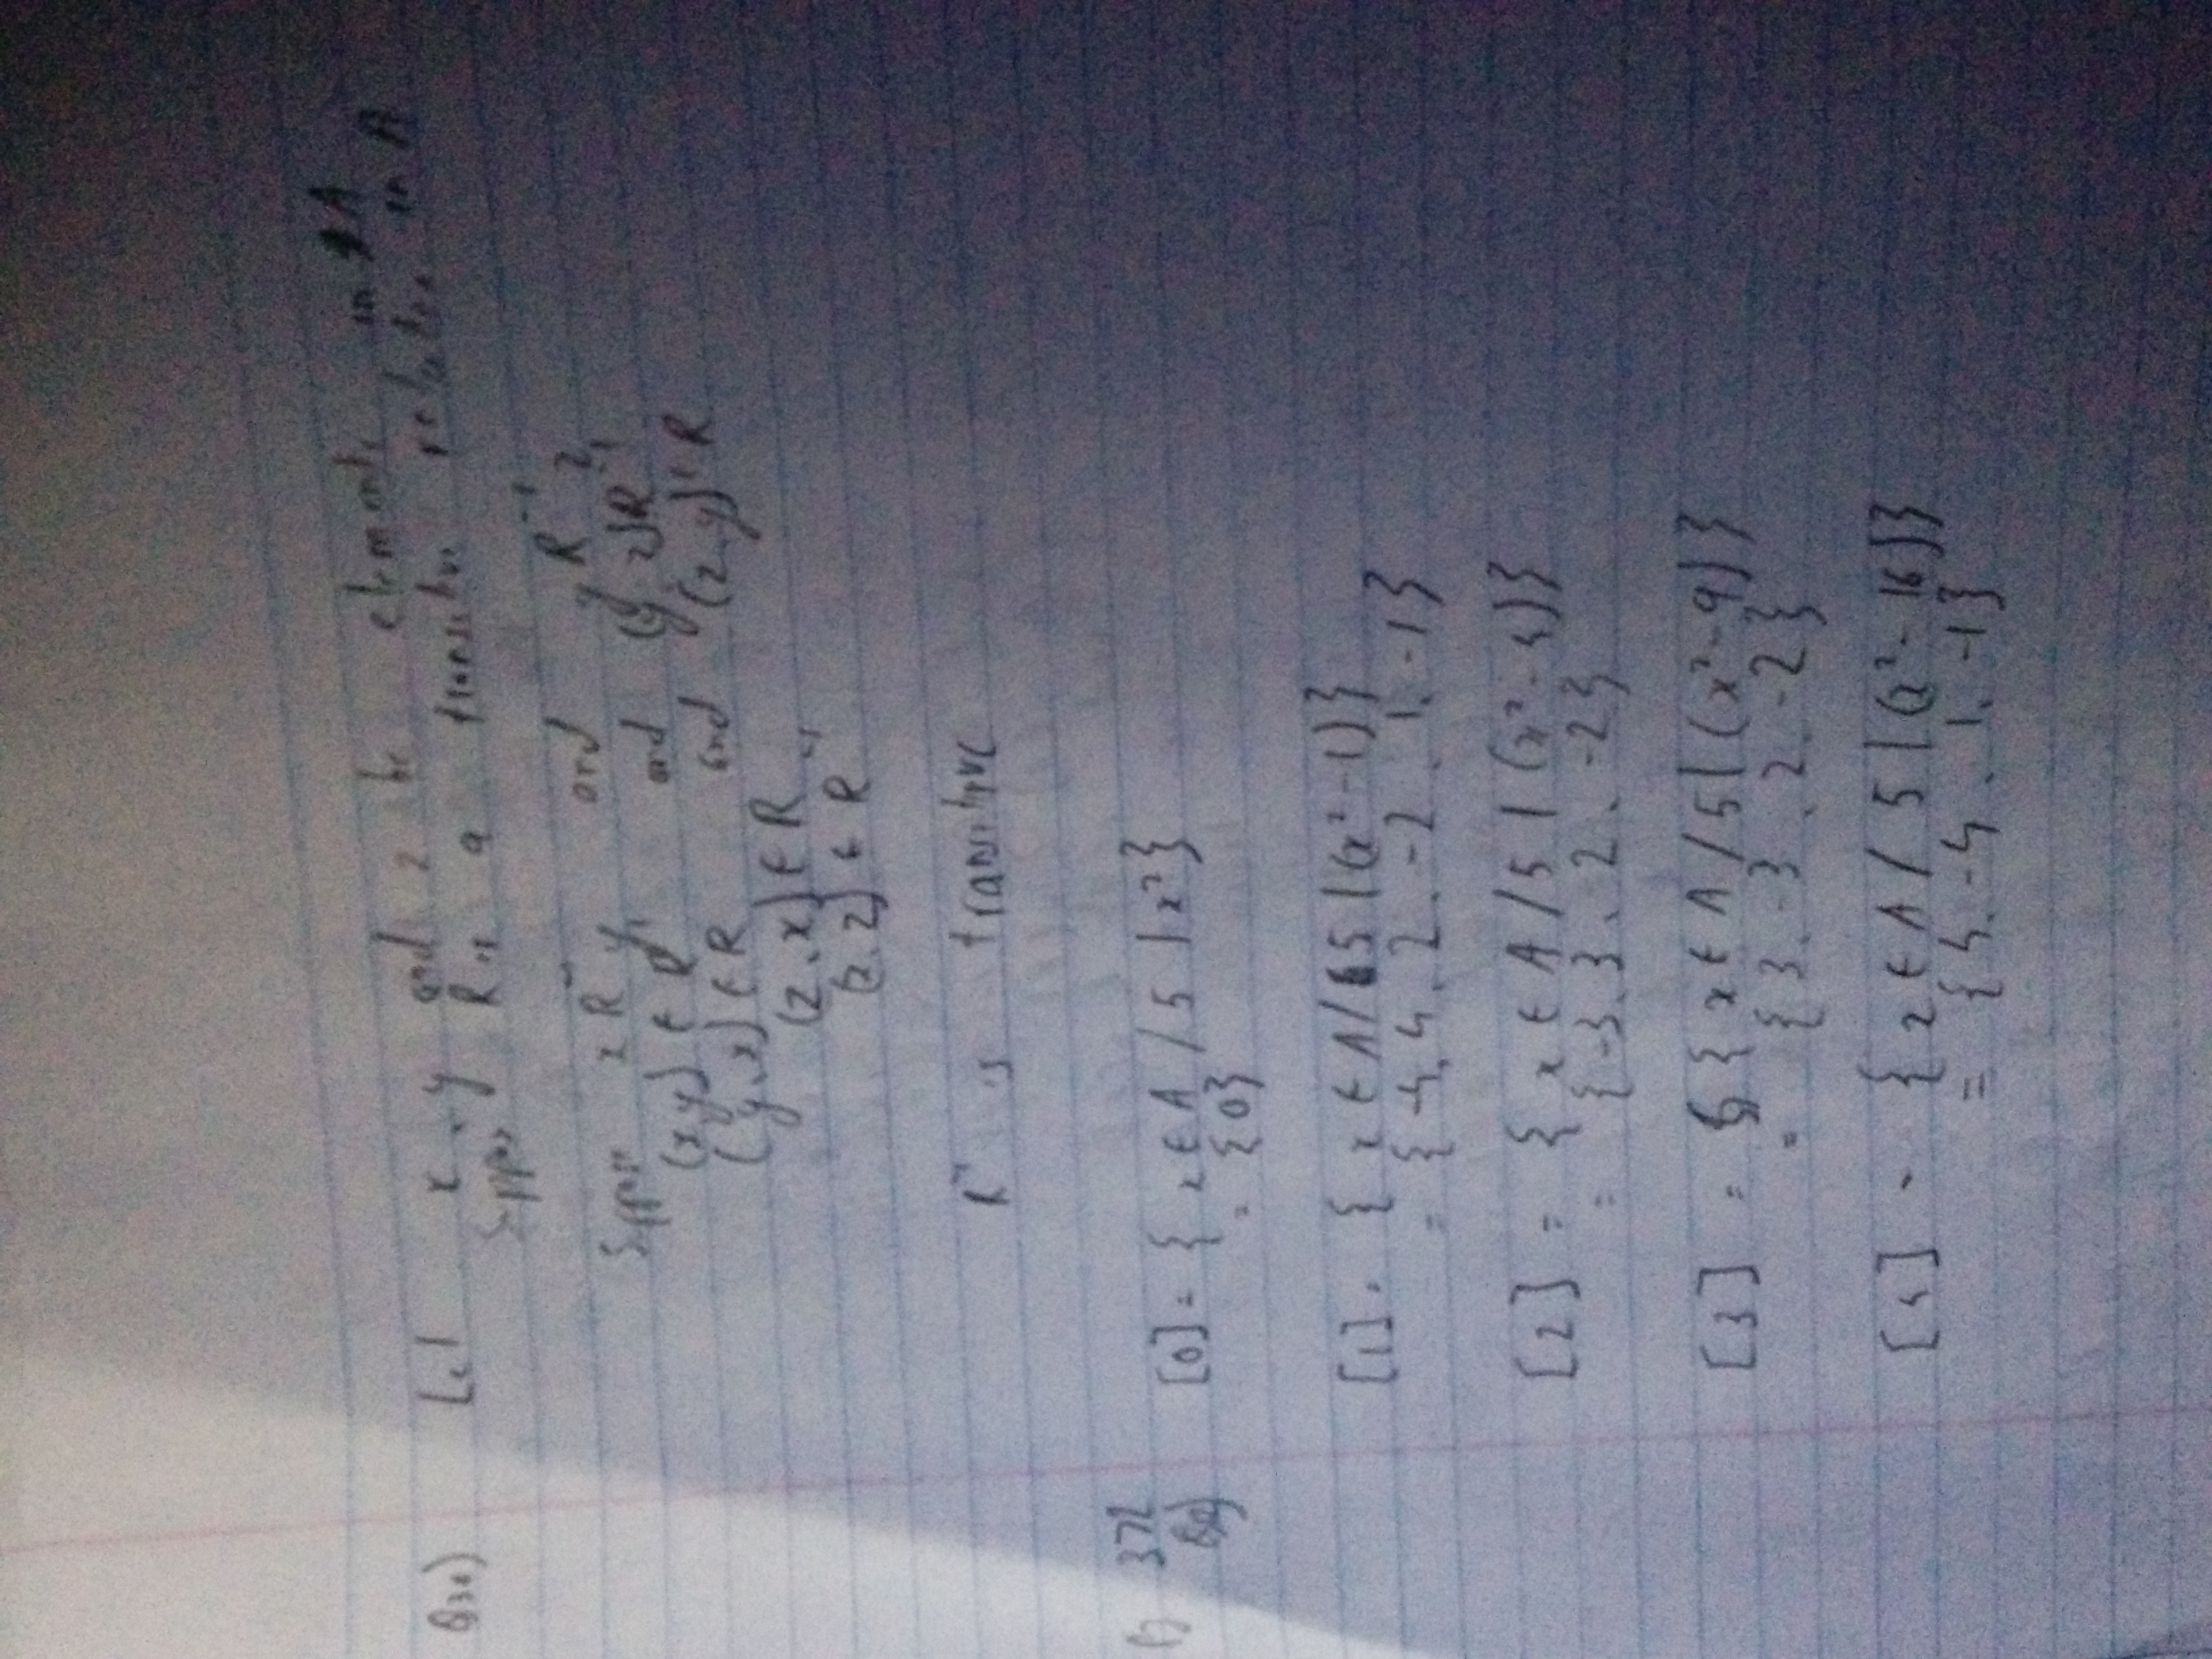 Q30) Let x, y and z be elements in A
Suppos R is a transitive relation in A
Suppose x R⁻¹ y and y R⁻¹ z
(x y) ∈ R⁻¹ and (y z) R⁻¹
(y, x) ∈ R and (z, y) R
(z, x) ∈ R
(x, z) ∈ R⁻¹
R⁻¹ is transitive
P 372
[0] = { x ∈ A / 5 | x² }
= {0}
[1] = { x ∈ A / 5 | (x² - 1) }
= { -4, 4, 2, -2, 1, -1 }
[2] = { x ∈ A / 5 | (x² - 4) }
= { -3, 3, 2, -2 }
[3] = { x ∈ A / 5 | (x² - 9) }
= { 3, -3, 2, -2 }
[4] = { x ∈ A / 5 | (x² - 16) }
= { 4, -4, 1, -1 }